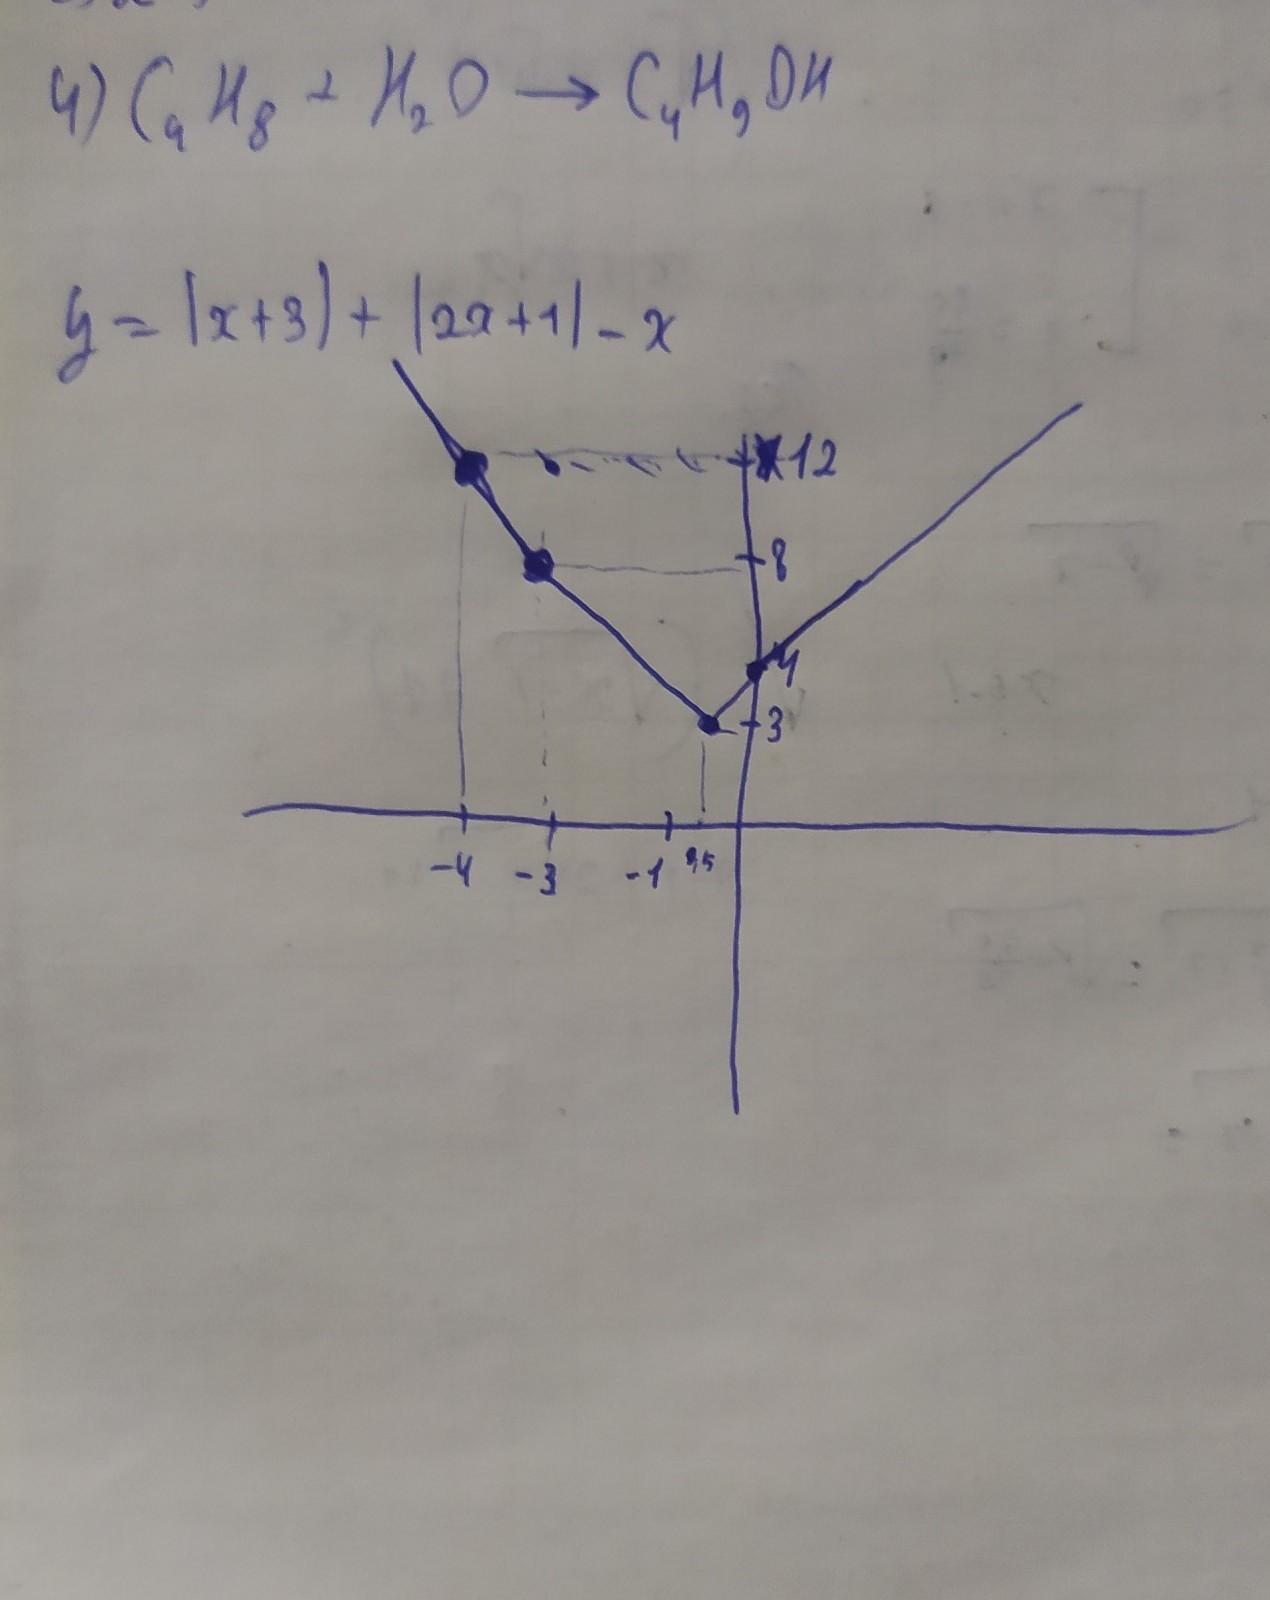 4) C₄H₈ + H₂O → C₄H₉OH
y = |x+3| + |2x+1| - x
12
8
4
3
-4 -3 -1 0,5